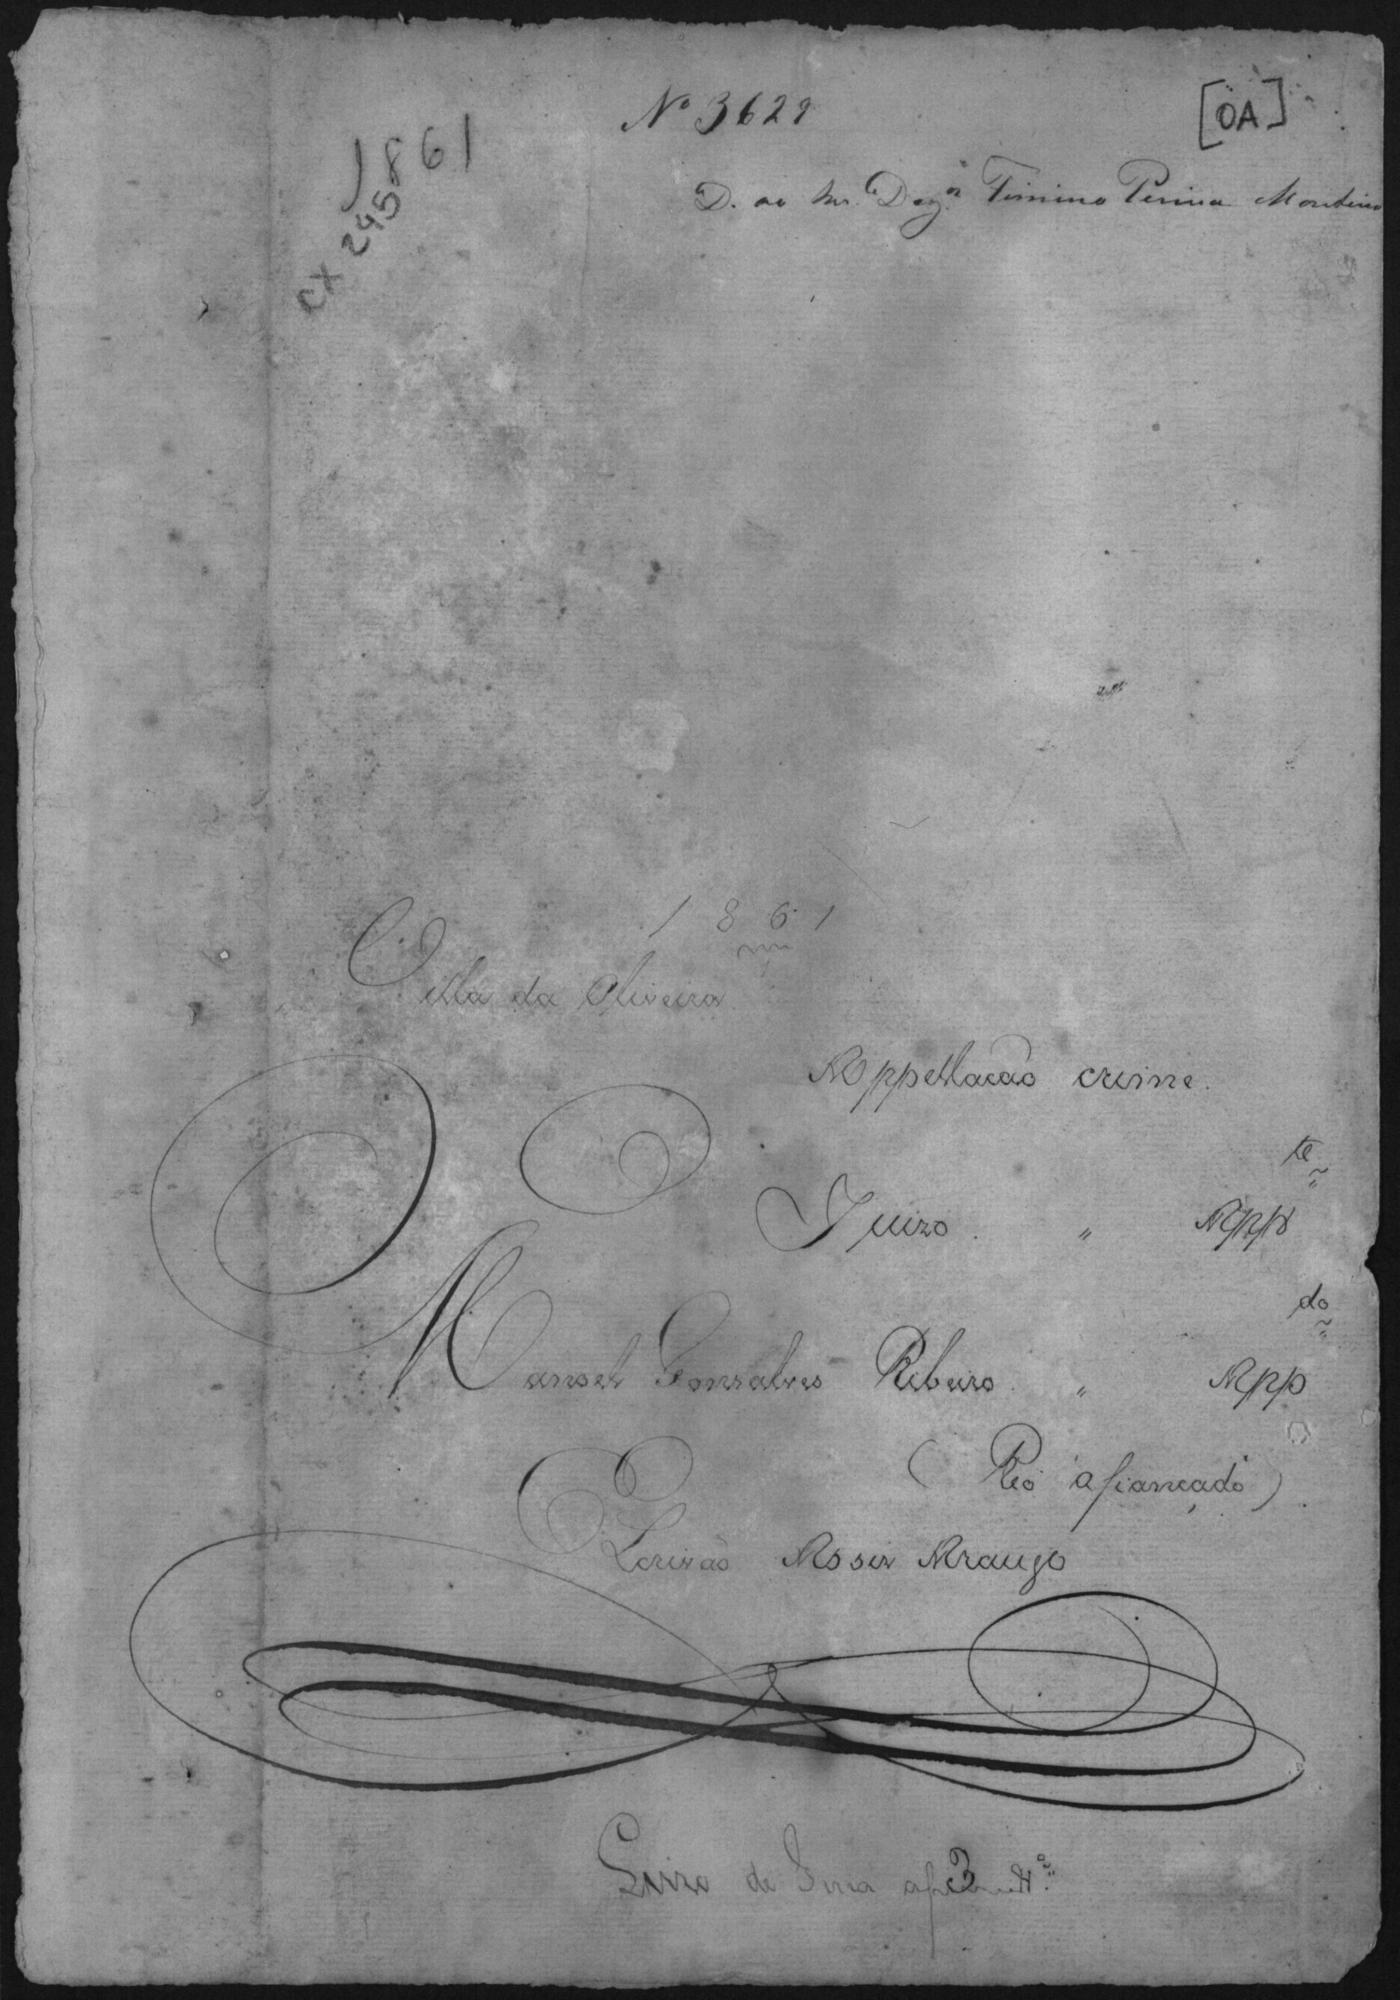 Nº 3629
[OA]
1861
CX 245
D. ao Snr. Dez.or Firmino Pereira Monteiro
1861
Villa da Oliveira
Appellação crime.
Juizo " App.te
Manoel Gonsalves Ribeiro " App.do
(Réo afiançado)
Escrivão Assis Araujo
Livro de